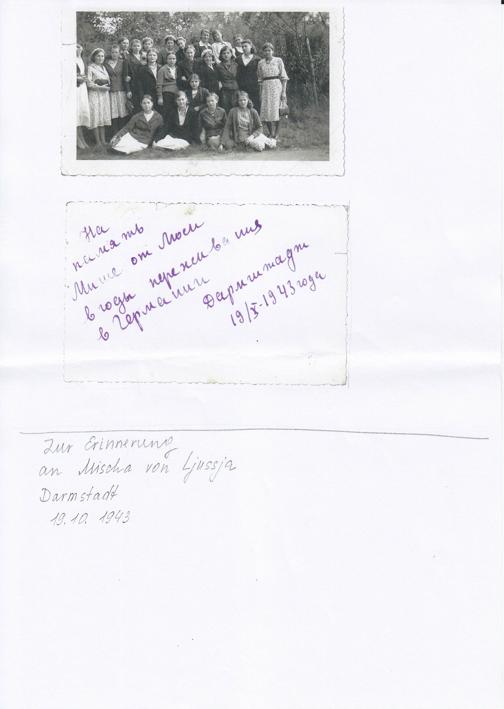 На
память
Мише от Люси
в годы переживания
в Германии
Дармштадт
19/X-1943 года
Zur Erinnerung
an Mischa von Ljussja
Darmstadt
19.10. 1943